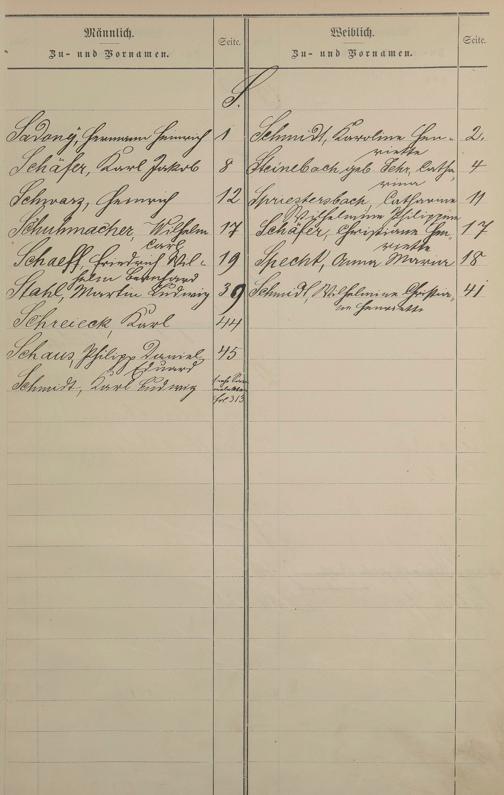 Männlich.
Zu- und Vornamen.
Seite.
Weiblich.
Zu- und Vornamen.
Seite.
S.
Sadony, Hermann Heinrich 1
Schäfer, Karl Jakob 8
Schwarz, Heinrich 12
Schuhmacher, Wilhelm 17
Carl
Schaeff, Friedrich Wil- 19
helm Bernhard
Stahl, Martin Ludwig 39
Schreieck, Karl 44
Schaus, Philipp Daniel 45
Eduard
Schmidt, Karl Ludwig
fol 313
Schmidt, Karoline Hen- 2.
riette
Steinebach geb. Fehr, Catha- 4
rina
Spriestersbach, Catharine 11
Wilhelmine Philippine
Schäfer, Christiane Hen- 17
riette
Specht, Anna Maria 18
Schmidt, Wilhelmine Christia- 41
ne Henriette